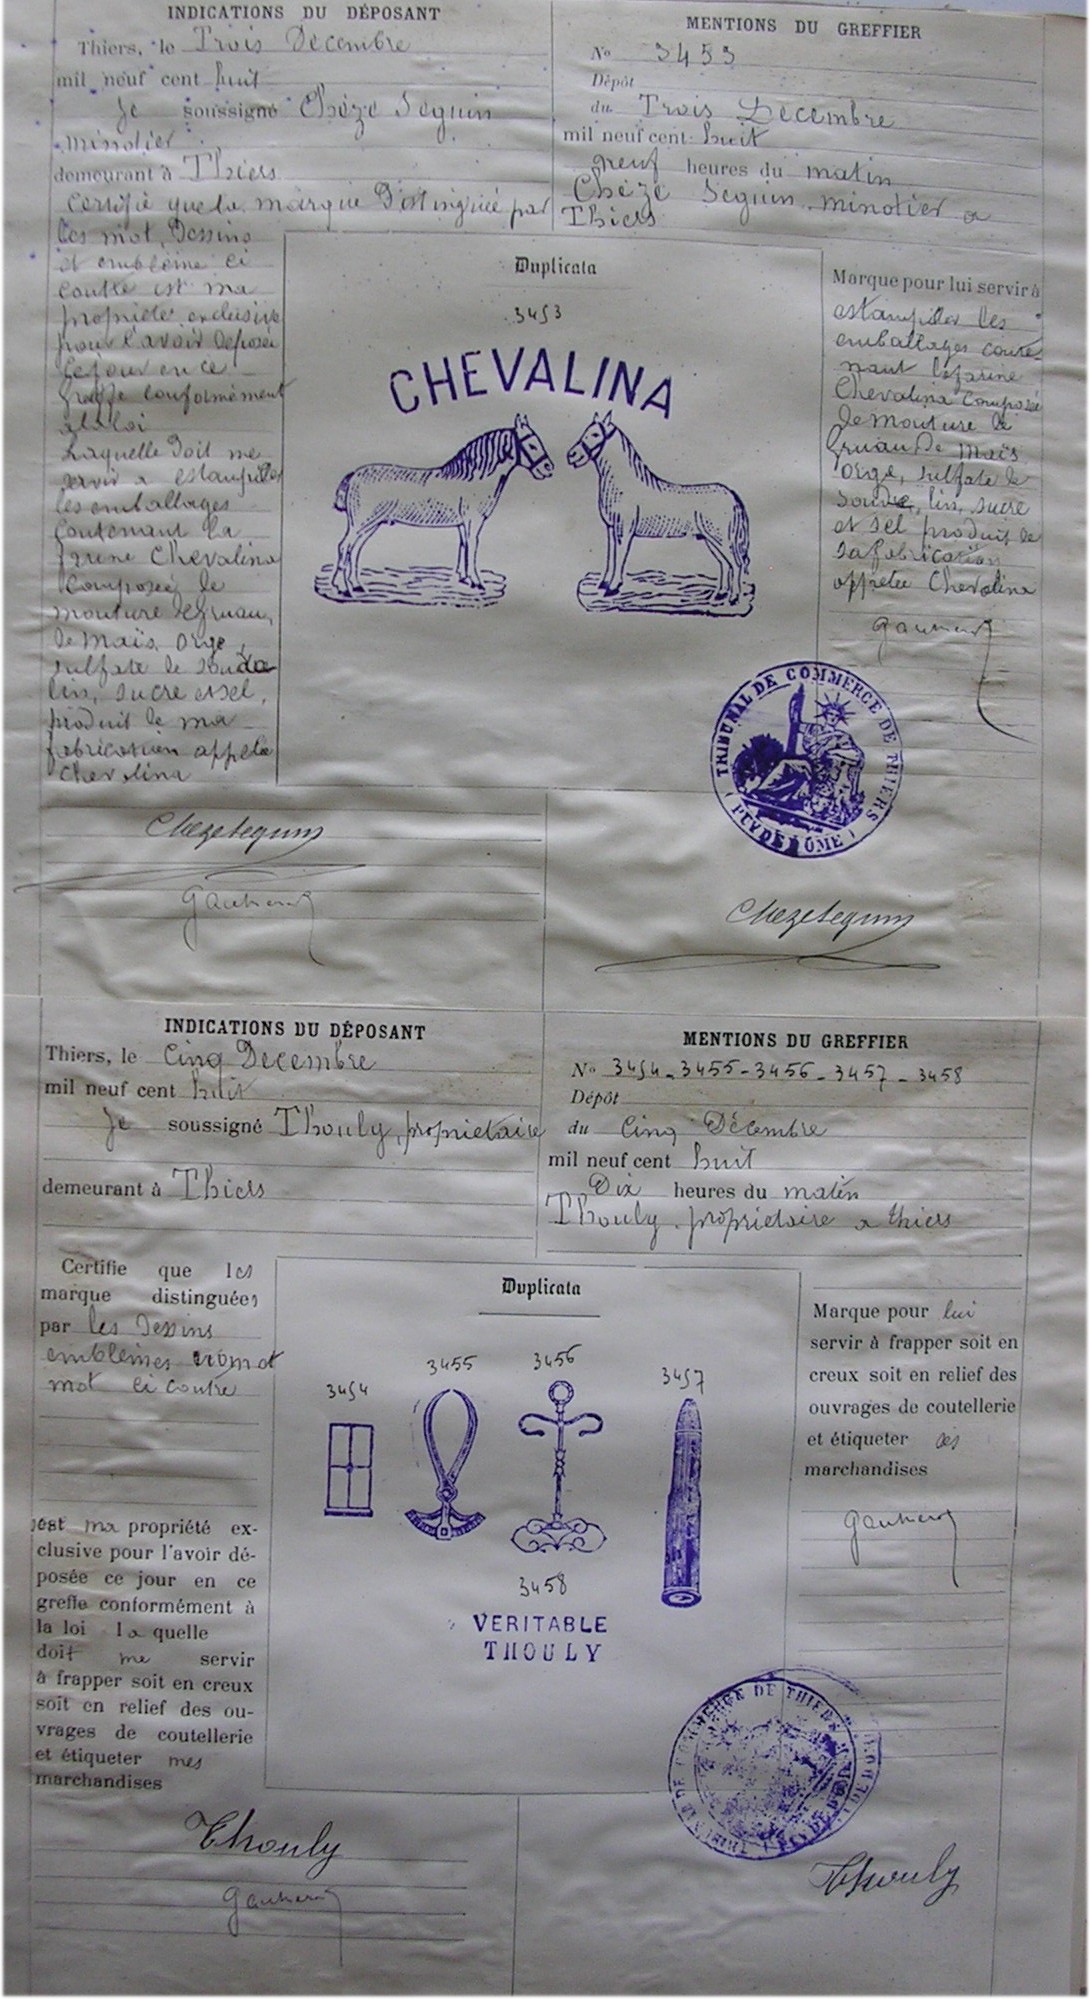 INDICATIONS DU DÉPOSANT
Thiers, le Trois Decembre
mil neuf cent huit
Je soussigné Chéze Seguin
minotier
demeurant à Thiers
certifie que la marque Distinguée par
Les mot, Dessins
et embleme ci
contre est ma
propriété exclusive
pour l'avoir déposée
Le jour en ce
Greffe conformement
a la loi
Laquelle Doit me
servir a estampiller
les emballages
contenant la
farine Chevalina
Composée de
mouture de gruau,
de maïs, orge,
sulfate de soude
lin, sucre et sel,
produit de ma
fabrication appelée
Chevalina
Chezeseguin
MENTIONS DU GREFFIER
No 3453
Dépôt
du Trois Decembre
mil neuf cent huit
neuf heures du matin
Chéze Seguin minotier a
Thiers
Duplicata
3453
CHEVALINA
Marque pour lui servir à
estampiller les
emballages conte-
nant la farine
Chevalina composée
de mouture de
gruau de maïs
orge, sulfate de
soude, lin, sucre
et sel produit de
sa fabrication
appelée Chevalina
TRIBUNAL DE COMMERCE DE THIERS
(PUY DE DOME)
Chezeseguin
INDICATIONS DU DÉPOSANT
Thiers, le Cinq Decembre
mil neuf cent huit
Je soussigné Thouly, propriétaire
demeurant à Thiers
Certifie que les
marque distinguées
par les Dessins
emblèmes
mot ci contre
est ma propriété ex-
clusive pour l'avoir dé-
posée ce jour en ce
greffe conformément à
la loi la quelle
doit me servir
à frapper soit en creux
soit en relief des ou-
vrages de coutellerie
et étiqueter mes
marchandises
Thouly
MENTIONS DU GREFFIER
No 3454-3455-3456-3457-3458
Dépôt
du Cinq Décembre
mil neuf cent huit
Dix heures du matin
Thouly, propriétaire a thiers
Duplicata
3454
3455
3456
3457
3458
VERITABLE
THOULY
Marque pour lui
servir à frapper soit en
creux soit en relief des
ouvrages de coutellerie
et étiqueter ses
marchandises
DE COMMERCE DE THIERS
Thouly